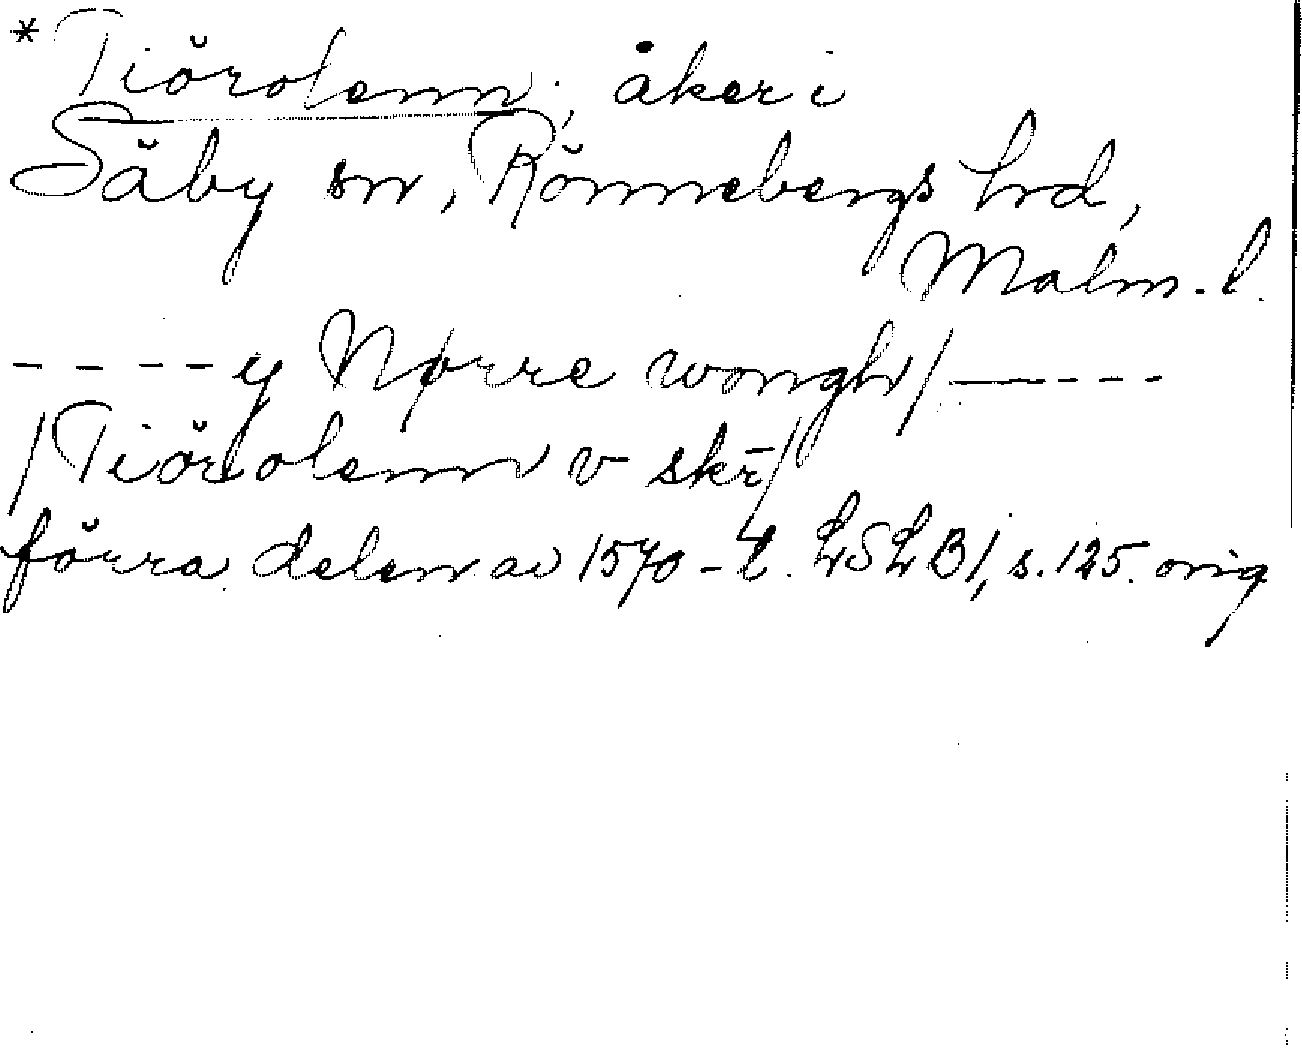 * Tiörolenn, åker i
Säby sn, Rönnebergs hrd,
Malm. l.
- - - - y Nørre wongh/ - - - -
/Tiörolenn v skr̄/
förra delen av 1570-t. LSLB 1, s. 125. orig